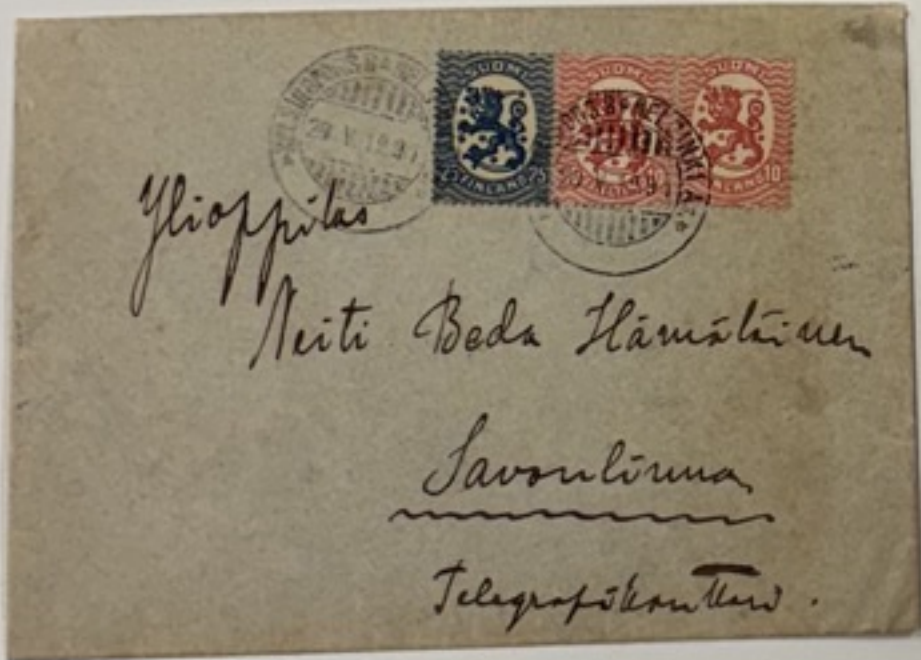 SUOMI SUOMI SUOMI
25 FINLAND 25
10
INLAND 10
Ylioppilas
Neiti Beda Hämäläinen
Savonlinna
Telegrafikonttori.